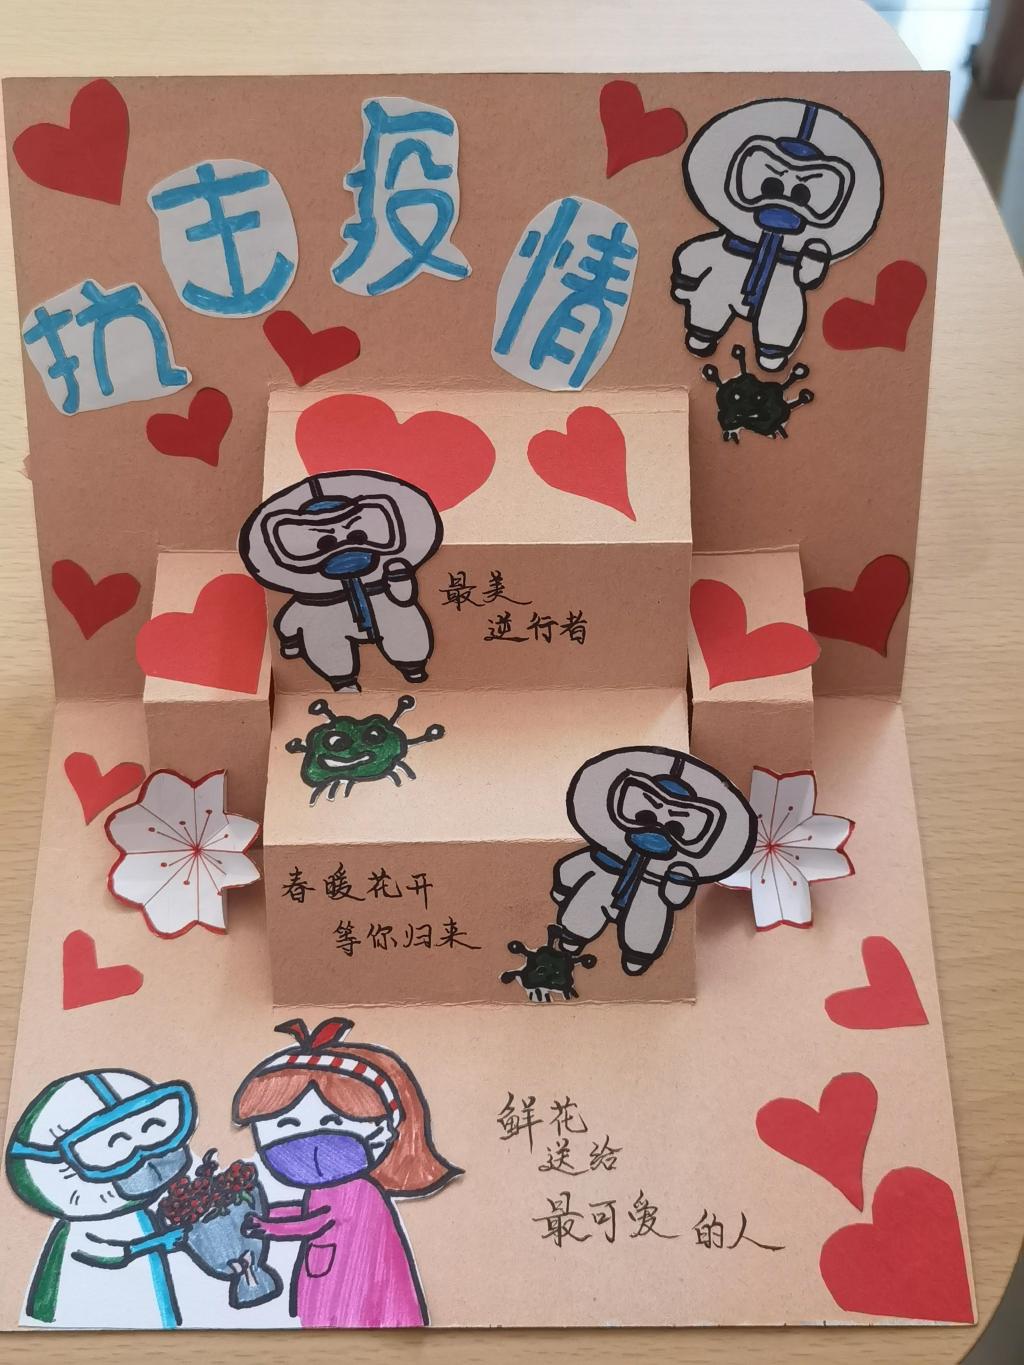 抗击疫情
最美
逆行者
春暖花开
等你归来
鲜花
送给
最可爱的人